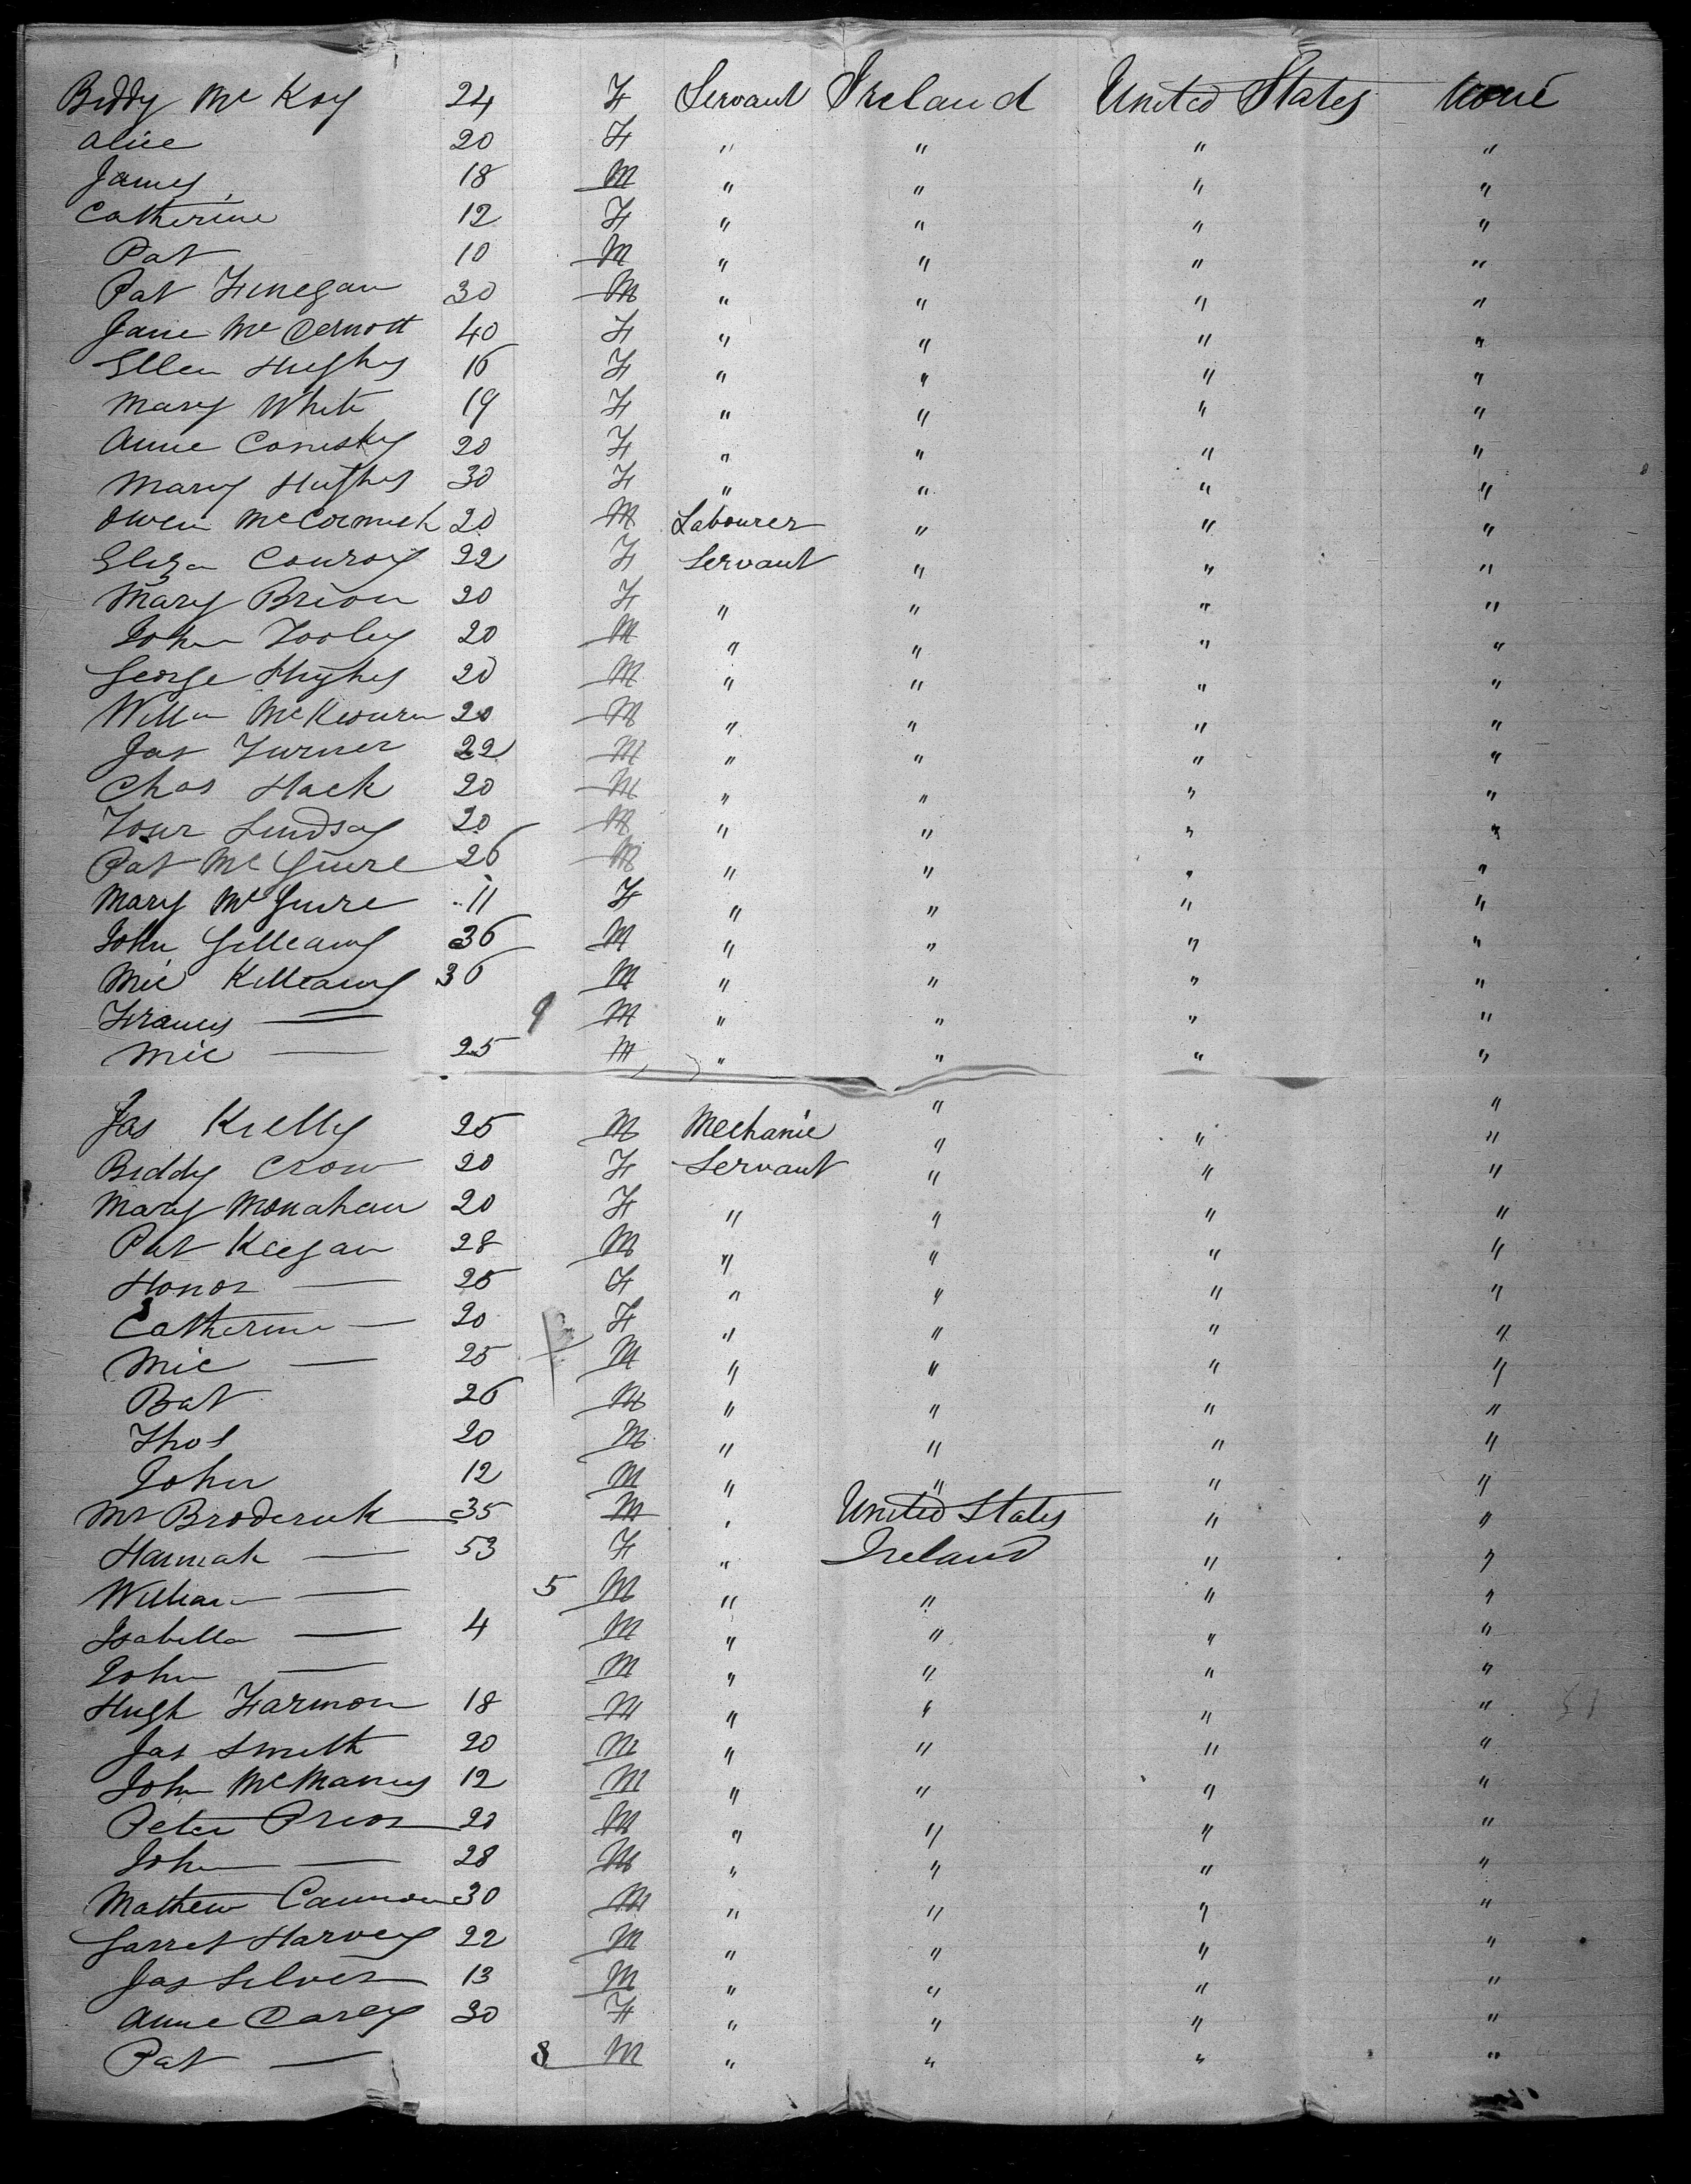 Biddy Mc Koy 24 F Servant Ireland United States None
Alice 20 F " " " "
James 18 M " " " "
Catherine 12 F " " " "
Pat 10 M " " " "
Pat Finegan 30 M " " " "
Jane Mc Dermott 40 F " " " "
Ellen Hughes 16 F " " " "
Mary White 19 F " " " "
Anne Comisky 20 F " " " "
Mary Hughes 30 F " " " "
Owen McCormick 20 M Labourer " " "
Eliza Conroy 22 F Servant " " "
Mary Brion 20 F " " " "
John Tooley 20 M " " " "
George Hughes 20 M " " " "
Willm 20 M " " " "
Jas Turner 22 M " " " "
Chas Hack 20 M " " " "
Lindsay 20 M " " " "
Pat Mc Guire 26 M " " " "
Mary Mc Guire 11 F " " " "
John Gilleany 36 M " " " "
Mic Killeany 36 M " " " "
Francis — 9 M " " " "
Mic — 25 M " " " "
" "
Jas Kielly 25 M Mechanic " " "
Biddy Crow 20 F Servant " " "
Mary Monahan 20 F " " " "
Pat Keegan 28 M " " " "
Honor — 25 F " " " "
Catherine — 20 F " " " "
Mic — 25 M " " " "
Bat 26 M " " " "
Thos 20 M " " " "
John 12 M " " " "
Mr Broderick 35 M " United States " "
Hannah — 53 F " Ireland " "
William — 5 M " " " "
Isabella — 4 M " " " "
John — M " " " "
Hugh Farmon 18 M " " " "
Jas Smith 20 M " " " "
John McManus 12 M " " " "
Peter Prior 20 M " " " "
John — 28 M " " " "
Mathew Cannon 30 M " " " "
Garret Harvey 22 M " " " "
Jas Silver 13 M " " " "
Anne Carey 30 F " " " "
Pat — 8 M " " " "